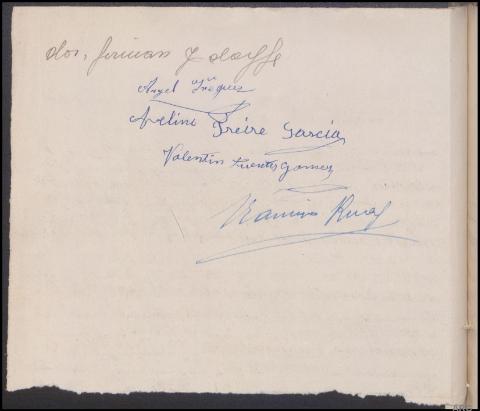 dos, firman y doy fe
Angel Iñiguez
Avelino Freire Garcia
Valentin Fuentes Gomez
Ramiro